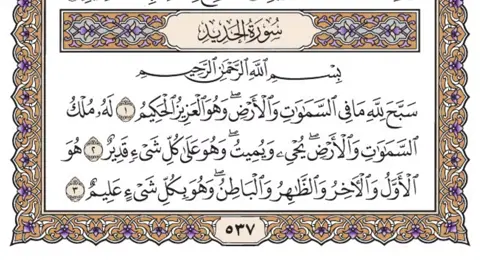 سُورَةُ الحَدِيدِ
بِسْمِ ٱللَّهِ ٱلرَّحْمَٰنِ ٱلرَّحِيمِ
سَبَّحَ لِلَّهِ مَا فِي ٱلسَّمَٰوَٰتِ وَٱلْأَرْضِۖ وَهُوَ ٱلْعَزِيزُ ٱلْحَكِيمُ ١ لَهُۥ مُلْكُ
ٱلسَّمَٰوَٰتِ وَٱلْأَرْضِۖ يُحْيِۦ وَيُمِيتُۖ وَهُوَ عَلَىٰ كُلِّ شَيْءٍ قَدِيرٌ ٢ هُوَ
ٱلْأَوَّلُ وَٱلْأٓخِرُ وَٱلظَّٰهِرُ وَٱلْبَاطِنُۖ وَهُوَ بِكُلِّ شَيْءٍ عَلِيمٌ ٣
٥٣٧